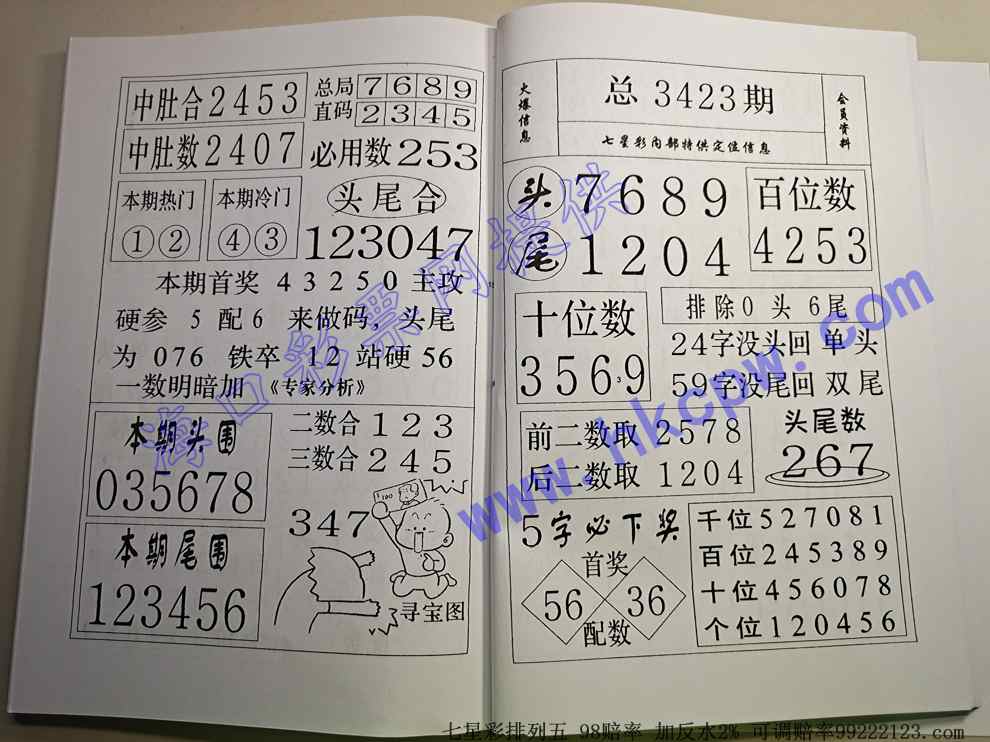 中肚合2453
总局 7 6 8 9
直码 2 3 4 5
中肚数2407
必用数253
本期热门
①②
本期冷门
④③
头尾合
123047
本期首奖 43250 主攻
硬参 5 配6 来做码，头尾
为 076 铁卒 12 站硬 56
一数明暗加 《专家分析》
本期头围
035678
二数合 123
三数合 245
347
100
本期尾围
123456
寻宝图
火爆信息
总 3423期
七星彩内部特供定位信息
会员资料
头 7689
尾 1204
百位数
4253
十位数
3569
排除0 头 6尾
24字没头回 单 头
59字没尾回 双 尾
前二数取 2578
后二数取 1204
头尾数
267
5字必下奖
首奖
56 36
配数
千位527081
百位245389
十位456078
个位120456
海口彩票网提供
www.hkcpw.com
七星彩排列五 98赔率 加反水2% 可调赔率99222123.com